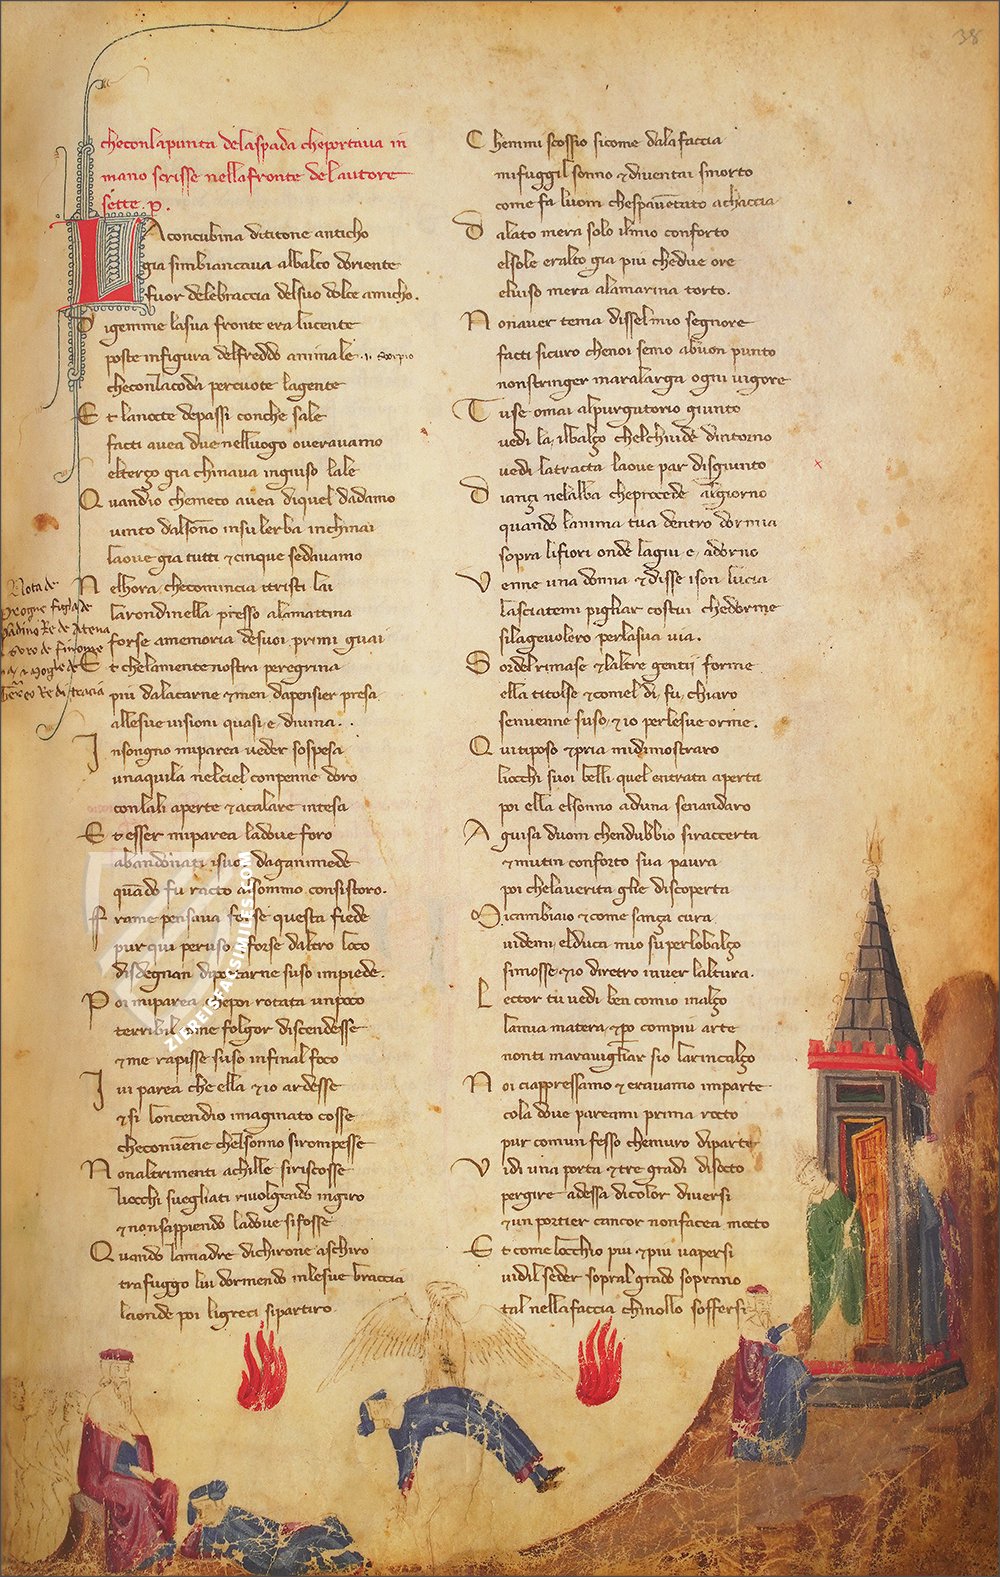 38
checonlapunta delaspada cheportaua in
mano scrisse nellafronte delautore
sette .p.
LAconcubina dititone anticho
gia simbiancaua albalco doriente
fuor delebraccia delsuo dolce amicho.
Di gemme lasua fronte era lucente
poste infigura delfreddo animale .i. scorpio
checonlacoda percuote lagente
Et lanocte depassi conche sale
facti auea due nelluogo oueravamo
elterço gia chinaua ingiuso lale
Quandio chemeco auea diquel dadamo
uinto dalsono insulerba inchinai
laoue gia tutti & cinque sedauamo
Nelhora checomincia itristi lai
larondinella presso alamattina
forse amemoria desuoi primi guai
Et chelamente nostra peregrina
piu dalacarne & men dapensier presa
allesue uisioni quasi e diuina . .
Insongno miparea ueder sospesa
unaquila nelciel conpenne doro
conlali aperte & acalare intesa
Et esser miparea ladoue foro
abandonati isuoi daganimede
quãdo fu racto alsommo consistoro.
Frame pensaua forse questa fiede
pur qui peruso & forse daltro loco
disdegnan diportarne suso inpiede.
Poi miparea chepoi rotata unpoco
terribil come folgor discendesse
& me rapisse suso infinal foco
Iui parea che ella & io ardesse
& si loncendio imaginato cosse
checonuene chelsonno sirompesse
Nonaltrimenti achille siriscosse
liocchi suegliati riuolgendo ingiro
& nonsappiendo ladoue sifosse
Quando lamadre dichirone aschiro
trafuggo lui dormendo inlesue braccia
laonde poi ligreci sipartiro
Nota de
Progne figla de
Re de Atena
Re di tracia
Chemmi scossio sicome dalafaccia
mifuggil sonno & diuentai smorto
come fa luom chespauẽtato achaccia
Dalato mera solo ilmio conforto
elsole eralto gia piu chedue ore
eluiso mera alamarina torto.
Nonauer tema dissel mio segnore
facti sicuro chenoi semo abuon punto
nonstringer maralarga ogni uigore
Tuse omai alpurgatorio giunto
uedi la ilbalço chelchiude dintorno
uedi latracta laoue par disgiunto
Diançi nelalba cheprocede algiorno
quando lanima tua dentro dormia
sopra lifiori onde lagiu e adorno
Venne una donna & disse ison lucia
lasciatemi pigliar costui chedorme
silageuolero perlasua uia.
Sordel rimase & laltre gentil forme
ella titolse & comel di fu chiaro
senuenne suso & io perlesue orme.
Quitiposo & pria midimostraro
liocchi suoi belli quel entrata aperta
poi ella elsonno aduna senandaro
Aguisa duom chendubbio siraccerta
& mutin conforto sua paura
poi chelauerita glie discoperta
Micambiaio & come sança cura
uidemi elduca mio superlobalço
simosse & io diretro inuer laltura.
Lector tu uedi ben comio inalço
lamia matera & po compiu arte
nonti marauigliar sio larincalço
Noi ciappressamo & erauamo inparte
cola doue pareami prima rocto
pur comun fesso chemuro diparte
Vidi una porta & tre gradi disocto
pergire adessa dicolor diuersi
& un portier cancor nonfacea mocto
Et come locchio piu & piu uapersi
uidil seder sopral grado soprano
tal nellafaccia chinollo soffersi
ZIEREISFACSIMILES.COM